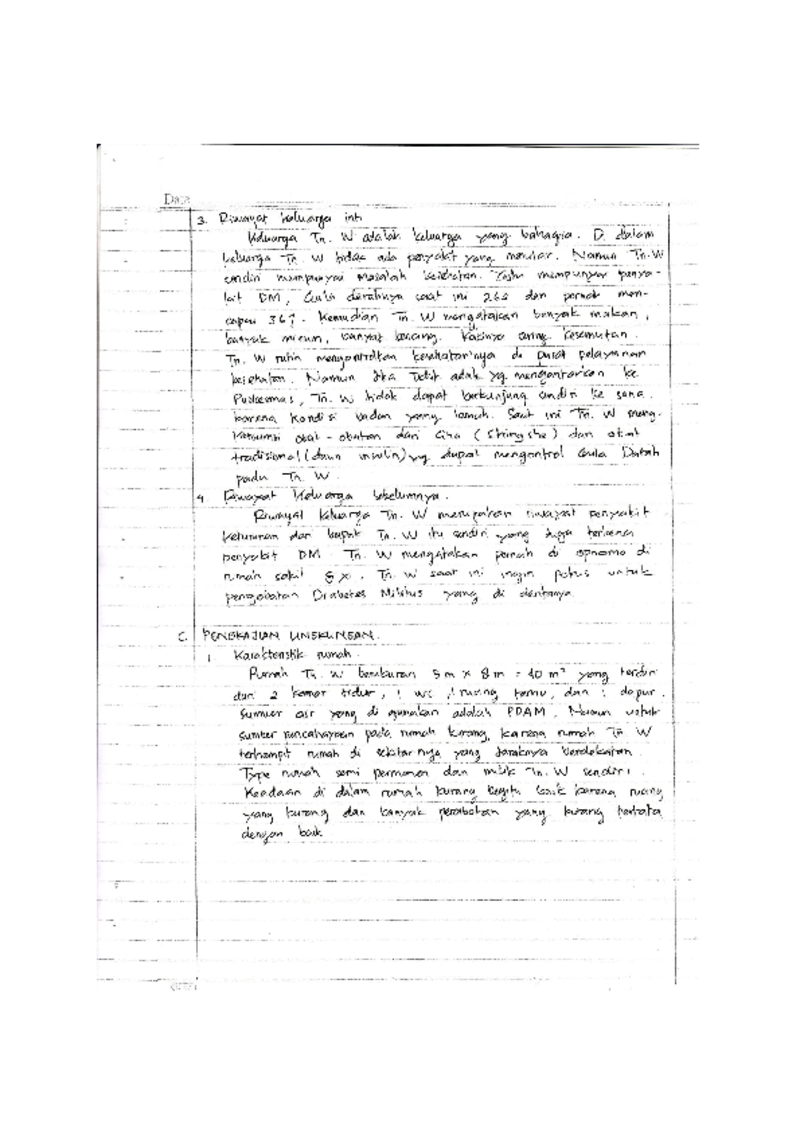 Date
3. Riwayat keluarga inti
Keluarga Tn. W adalah keluarga yang bahagia. Di dalam
keluarga Tn. W tidak ada penyakit yang menular. Namun Tn. W
sendiri mempunyai masalah kesehatan. Yaitu mempunyai penya-
kit DM, Gula darahnya saat ini 262 dan pernah men-
capai 367. Kemudian Tn. W mengatakan banyak makan,
banyak minum, banyak kencing. Kakinya sering kesemutan.
Tn. W rutin mengontrolkan kesehatannya di pusat pelayanan
kesehatan. Namun jika tidak ada yg mengantarkan ke
Puskesmas, Tn. W tidak dapat berkunjung sendiri ke sana
karena kondisi badan yang lemah. Saat ini Tn. W meng-
konsumsi obat - obatan dari Cina (Shingshe) dan obat
tradisional (daun insulin) yg dapat mengontrol Gula Darah
pada Tn. W
4. Riwayat Keluarga sebelumnya.
Riwayat keluarga Tn. W merupakan riwayat penyakit
keturunan dari bapak Tn. W itu sendiri yang juga terkena
penyakit DM. Tn. W mengatakan pernah di opname di
rumah sakit 8 x. Tn. W saat ini ingin putus untuk
pengobatan Diabetes Militus yang di deritanya
C. PENGKAJIAN LINGKUNGAN.
1. Karakteristik rumah.
Rumah Tn. W berukuran 5 m x 8 m = 40 m² yang terdiri
dari 2 kamar tidur, 1 wc, 1 ruang tamu, dan 1 dapur.
Sumber air yang di gunakan adalah PDAM. Namun untuk
sumber pencahayaan pada rumah kurang, karena rumah Tn W
terhimpit rumah di sekitarnya yang jaraknya berdekatan
Type rumah semi permanen dan milik Tn. W sendiri.
Keadaan di dalam rumah kurang begitu baik karena ruang
yang kurang dan banyak perabotan yang kurang tertata
dengan baik